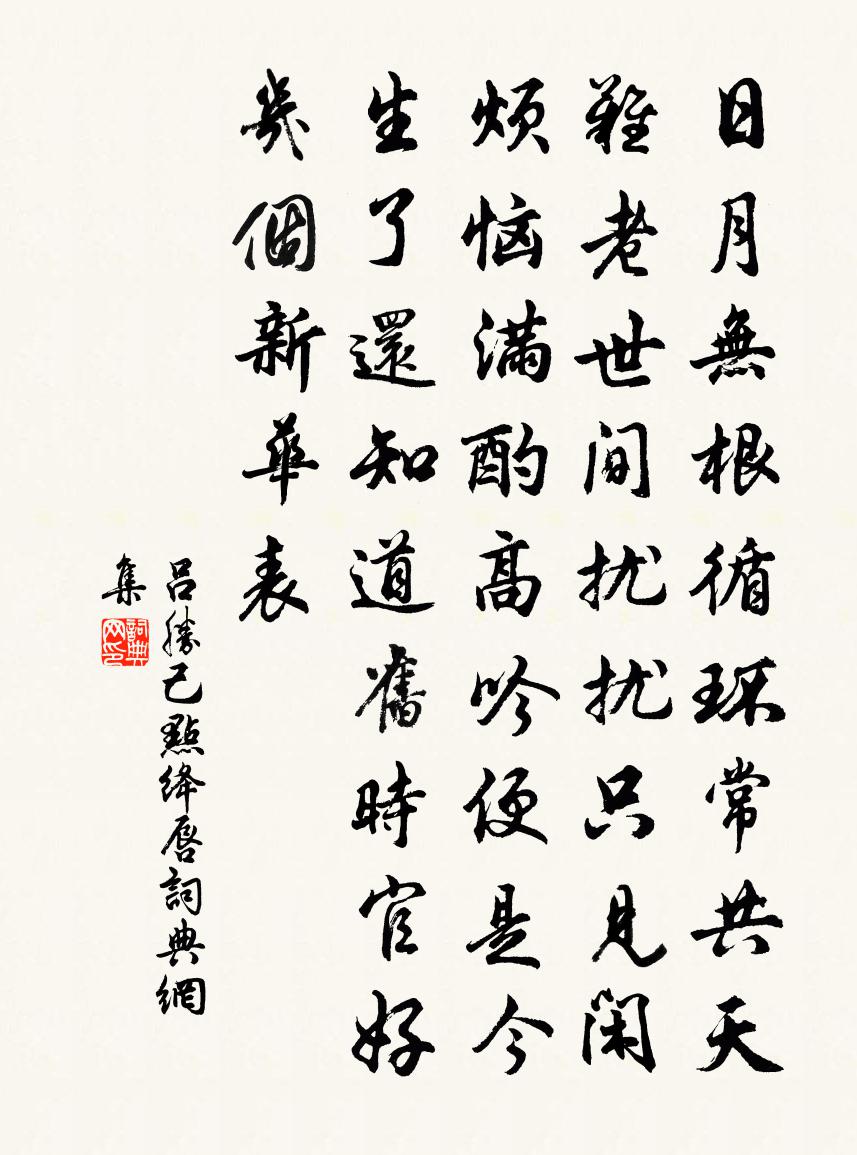 日月無根循环常共天
難老世间扰扰只見闲
烦恼满酌高吟便是今
生了還知道舊時官好
幾個新華表
吕勝己點绛唇詞典網
集
詞典網印